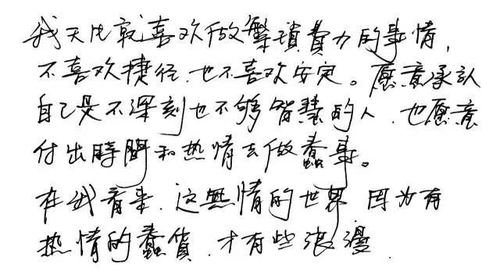 我天比就喜欢做繁瑣費力的事情，
不喜欢捷径，也不喜欢安定。愿意承认
自己是不深刻也不够智慧的人，也愿意
付出時間和热情去做蠢事。
在我看来，这無情的世界，因为有
热情的蠢貨，才有些浪漫．